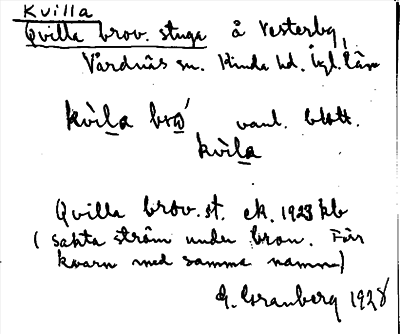 Kvilla
Qvilla brov. stuga å Vesterby,
Vårdnäs sn. Kinda hd. Ögl. län
kvìla bro´
vanl. blott.
kvìla
Qvilla brov. st. ek. 1928 kb
(sakta ström under bron. Förr
kvarn med samma namn)
G. Granberg 1928